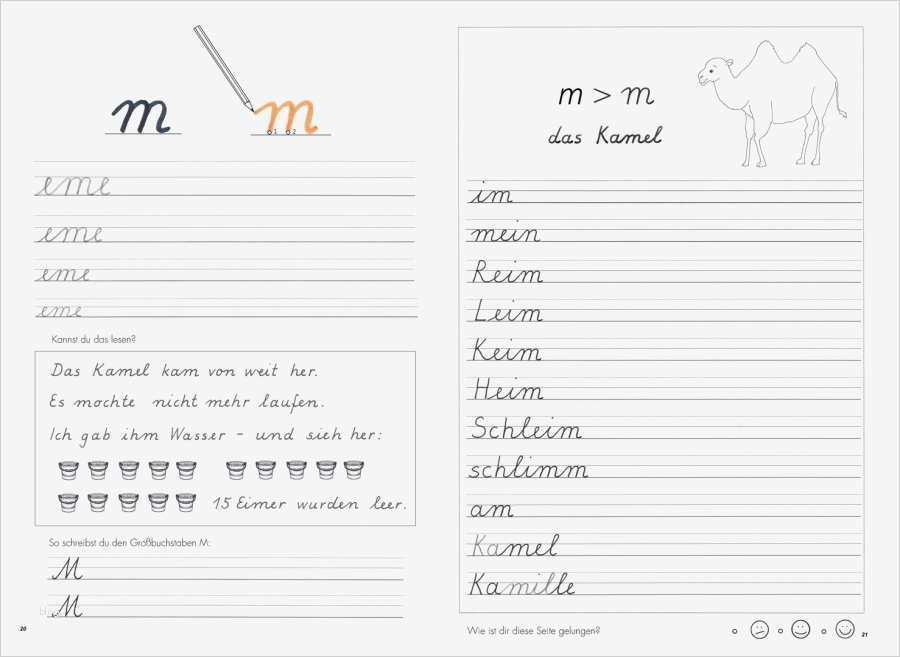 m m
1 2
eme
eme
eme
eme
Kannst du das lesen?
Das Kamel kam von weit her.
Es mochte nicht mehr laufen.
Ich gab ihm Wasser – und sieh her:
15 Eimer wurden leer.
So schreibst du den Großbuchstaben M:
M
M
20
m > m
das Kamel
im
mein
Reim
Leim
Keim
Heim
Schleim
schlimm
am
Kamel
Kamille
Wie ist dir diese Seite gelungen?
21